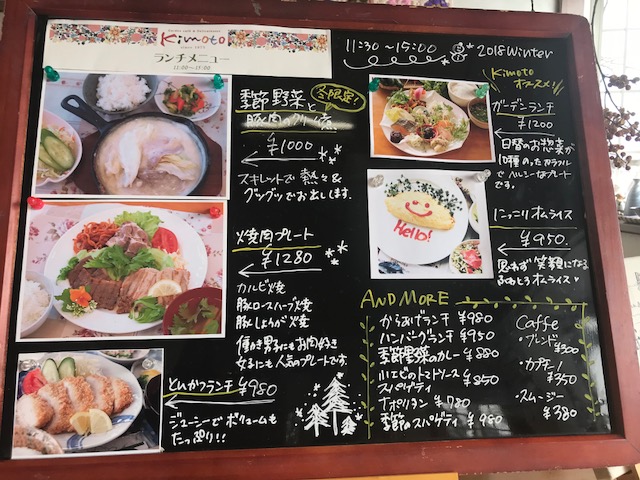 Kimoto
since 1975
ランチメニュー
11:00〜15:00
11:30〜15:00
2018 Winter
季節野菜と
豚肉のクリーム煮
冬限定!
¥1000
スキレットで熱々&
グツグツでお出しします。
焼肉プレート
¥1280
カルビ焼
豚ロースハーブ焼
豚しょうが焼
働き男子にもお肉好き
女子にも人気のプレートです。
とんかつランチ ¥980
ジューシーでボリュームも
たっぷり!!
Kimoto
オススメ!
ガーデンランチ
¥1200
日替のお惣菜が
10種のったカラフル
でヘルシーなプレート
です。
Hello!
にっこりオムライス
¥950.
思わず笑顔になる
ふわとろ
オムライス♥
AND MORE
からあげランチ ¥980
ハンバーグランチ ¥950
季節野菜のカレー ¥880
小エビのトマトソース
スパゲティ ¥850
ナポリタン ¥780
季節のスパゲティ ¥980
Caffe
・ブレンド
¥300
・カプチーノ
¥350
・スムージー
¥380